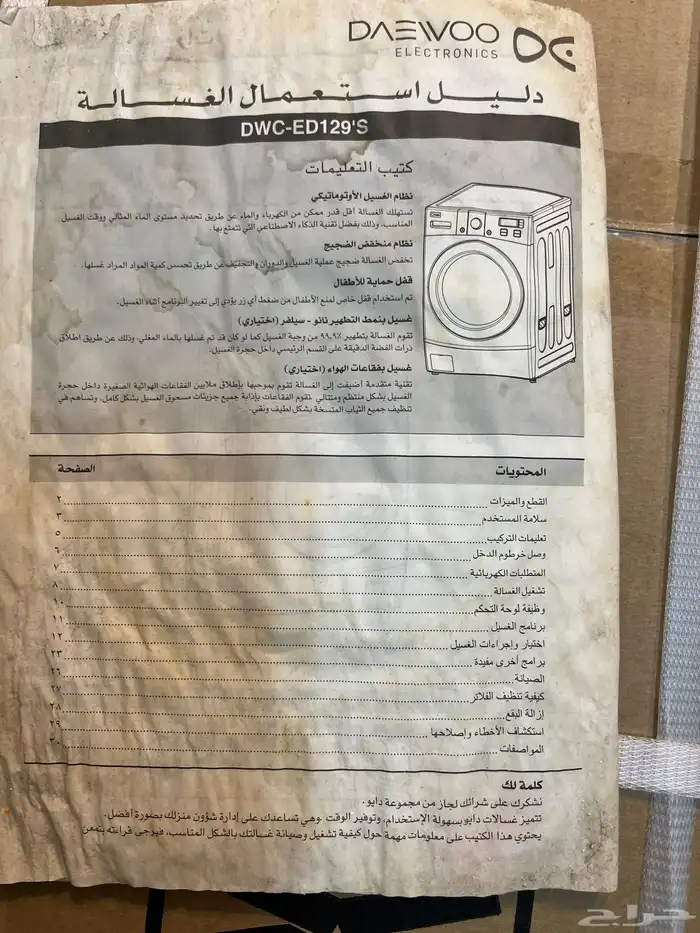 DAEWOO
ELECTRONICS
دليل استعمال الغسالة
DWC-ED129'S
كتيب التعليمات
نظام الغسيل الأوتوماتيكي
تستهلك الغسالة أقل قدر ممكن من الكهرباء والماء عن طريق تحديد مستوى الماء المثالي ووقت الغسيل
المناسب، وذلك بفضل تقنية الذكاء الاصطناعي التي تتمتع بها.
نظام منخفض الضجيج
تخفض الغسالة ضجيج عملية الغسيل والدوران والتجفيف عن طريق تحسس كمية المواد المراد غسلها.
قفل حماية للأطفال
تم استخدام قفل خاص لمنع الأطفال من ضغط أي زر يؤدي إلى تغيير البرنامج أثناء الغسيل.
غسيل بنمط التطهير نانو - سيلفر (اختياري)
تقوم الغسالة بتطهير ٩٩,٩٪ من وجبة الغسيل كما لو كان قد تم غسلها بالماء المغلي، وذلك عن طريق اطلاق
ذرات الفضة الدقيقة على القسم الرئيسي داخل حجرة الغسيل.
غسيل بفقاعات الهواء (اختياري)
تقنية متقدمة أضيفت إلى الغسالة تقوم بموجبها بإطلاق ملايين الفقاعات الهوائية الصغيرة داخل حجرة
الغسيل بشكل منتظم ومتتالي. تقوم الفقاعات بإذابة جميع جزيئات مسحوق الغسيل بشكل كامل، وتساهم في
تنظيف جميع الثياب المتسخة بشكل لطيف ونقي.
المحتويات الصفحة
القطع والميزات ٢
سلامة المستخدم ٣
تعليمات التركيب ٥
وصل خرطوم الدخل ٦
المتطلبات الكهربائية ٧
تشغيل الغسالة ٨
وظيفة لوحة التحكم ١٠
برنامج الغسيل ١١
اختيار وإجراءات الغسيل ١٢
برامج أخرى مفيدة ٢٣
الصيانة ٢٦
كيفية تنظيف الفلاتر ٢٧
إزالة البقع ٢٨
استكشاف الأخطاء وإصلاحها ٢٩
المواصفات ٣٠
كلمة لك
نشكرك على شرائك لجاز من مجموعة دايو.
تتميز غسالات دايو بسهولة الإستخدام، وتوفير الوقت .وهي تساعدك على إدارة شؤون منزلك بصورة أفضل.
يحتوي هذا الكتيب على معلومات مهمة حول كيفية تشغيل وصيانة غسالتك بالشكل المناسب، فيرجى قراءته بتمعن
حراج